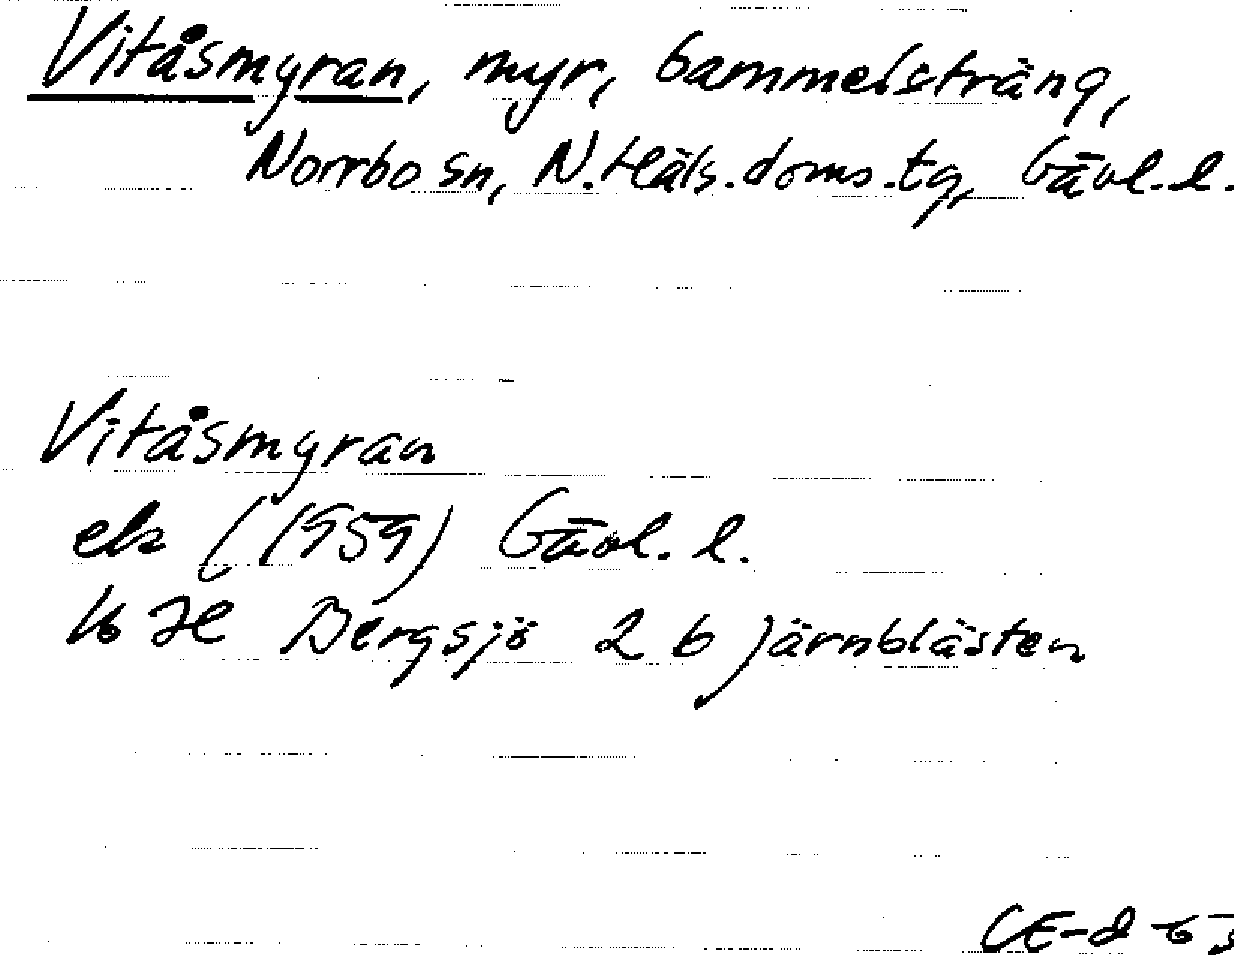 Vitåsmyran, myr, Gammelsträng,
Norrbo sn, N. Häls. doms. tg, Gävl. l.
Vitåsmyran
ek (1959) Gävl. l.
16 H Bergsjö 2 b järnblästen
CE-d 63